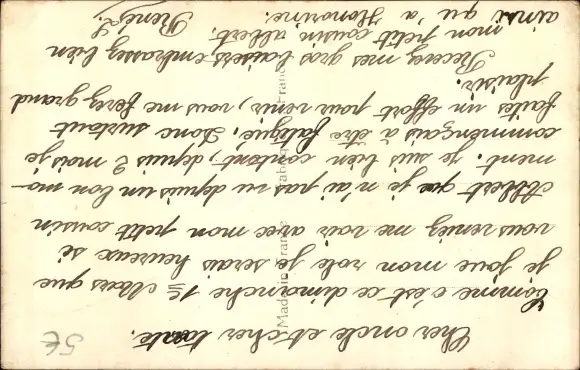 Cher oncle et cher tante.
Comme c'est ce dimanche 15 Mars que
je joue mon role je serais heureux si
vous veniez me voir avec mon petit cousin
Albert que je n'ai pas vu depuis un bon mo-
ment. Je suis bien content, depuis 2 mois je
commençais à être fatigué. Donc surtout
faites un effort pour venir, vous me ferez grand
plaisir.
Recevez mes gros baisers embrassez bien
mon petit cousin Albert.
ainsi qu'à Honorine.
René
5€
Made in France